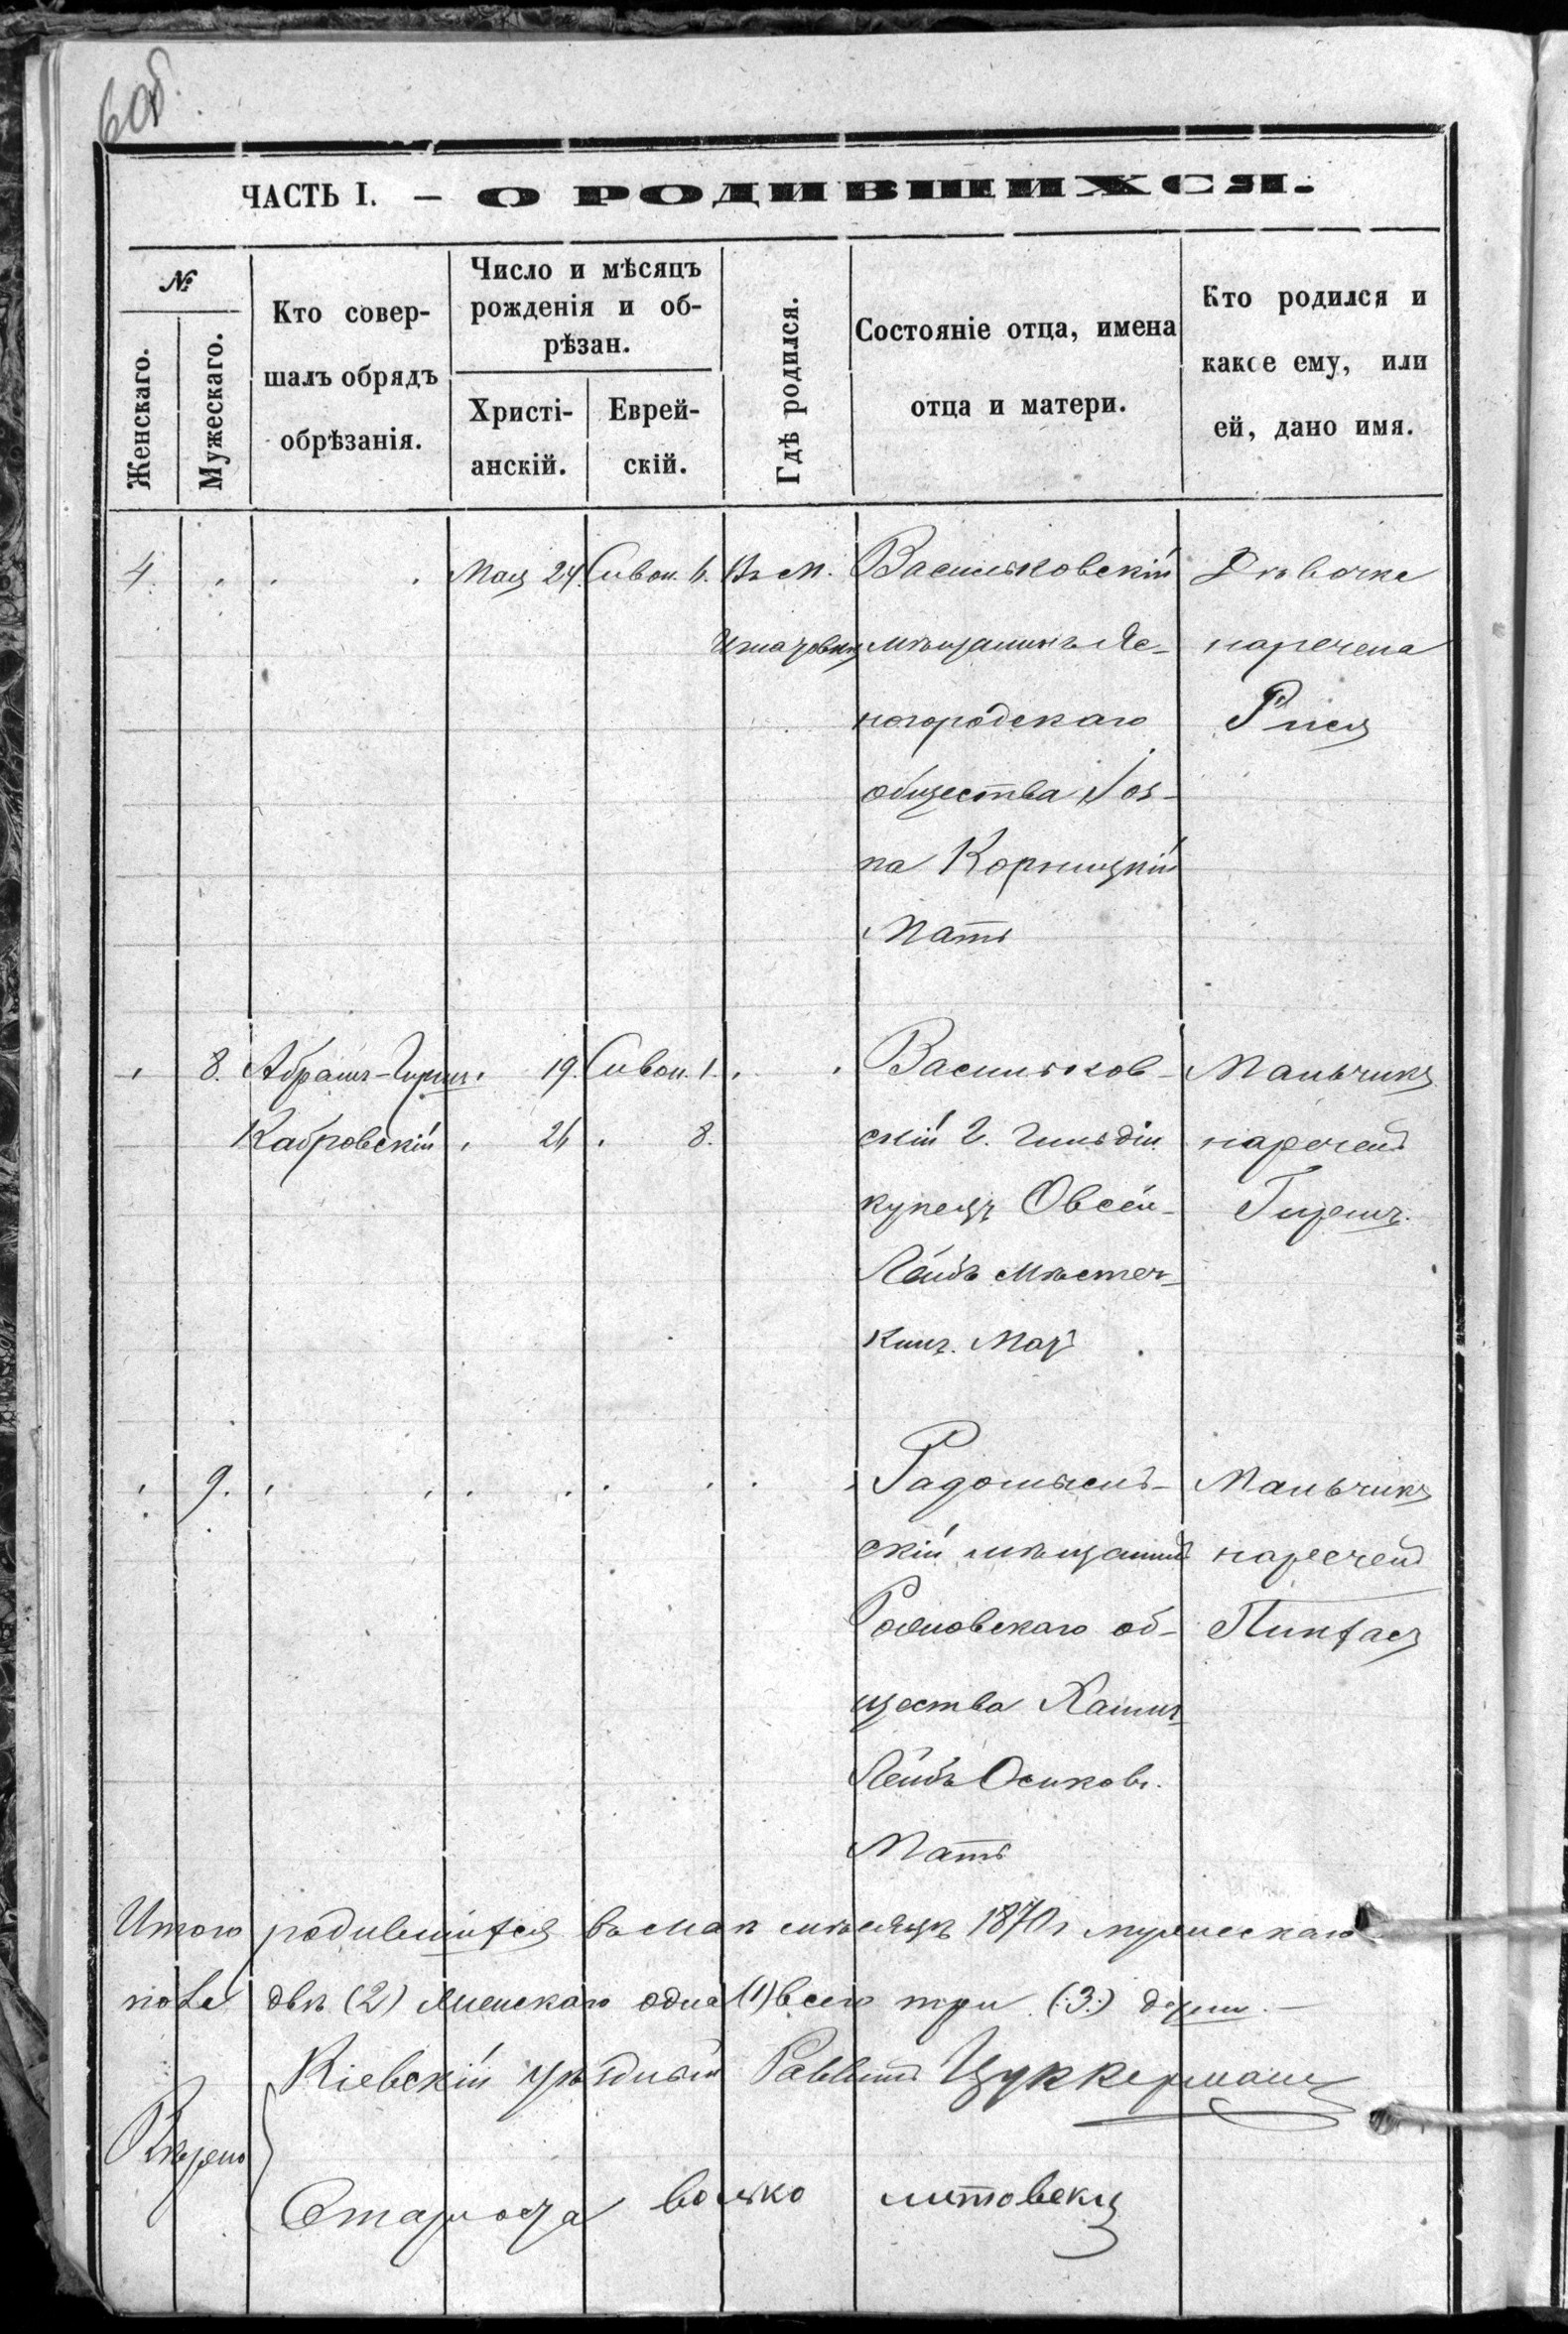 6 об.
ЧАСТЬ I. — О РОДИВШИХСЯ.
№
Женскаго.
Мужескаго.
Кто совер-
шалъ обрядъ
обрѣзанія.
Число и мѣсяцъ
рожденія и об-
рѣзан.
Христі-
анскій.
Еврей-
скій.
Гдѣ родился.
Состояніе отца, имена
отца и матери.
Кто родился и
какое ему, или
ей, дано имя.
4. Мая 24. Сивон. 6. Въ м.
Игнатовкѣ
Васильковскій
мѣщанинъ Яс-
ногородскаго
общества Іос-
па Корницкій
Мать
Дѣвочка
наречена
Рися
8. Абрамъ-Гершъ 19. Сивон. 1.
Кабровскій 26 8.
Васильков-
скій 2. гильдіи
купецъ Овсей-
Лейбъ Мѣстеч-
кинъ. Мать
Мальчикъ
нареченъ
Гершъ.
9.
Радомысль-
скій мѣщанинъ
общества Хаимъ
Лейбъ Осиковъ.
Мать
Мальчикъ
нареченъ
Пинхасъ
Итого родившихся въ маѣ мѣсяцѣ 1870 г мужескаго
пола двѣ (2) женскаго одна (1) всего три (:3:) души. —
Кіевскій уѣздный Раввинъ Цуккерманъ
Вѣрно
Староста Волько Литовскій